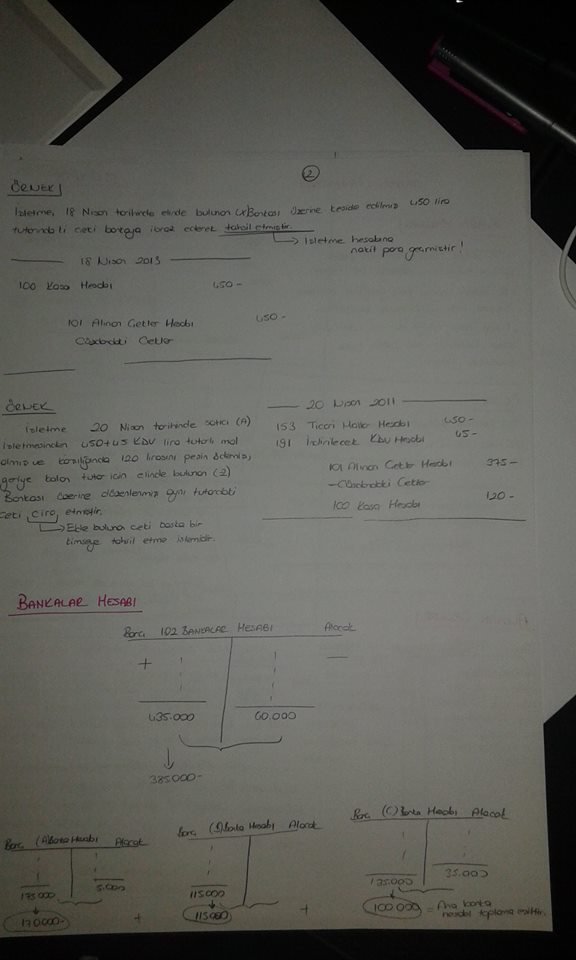 2
ÖRNEK
İşletme, 18 Nisan tarihinde elinde bulunan (x) Bankası üzerine keside edilmiş 450 lira
tutarındaki çeki bankaya ibraz ederek tahsil etmiştir.
→ İşletme hesabına
nakit para geçmiştir!
18 Nisan 2013
100 Kasa Hesabı 450-
101 Alınan Çekler Hesabı 450-
Cüzdandaki Çekler
ÖRNEK
İşletme 20 Nisan tarihinde satıcı (A)
İşletmesinden 450+45 KDV lira tutarlı mal
almış ve karşılığında 120 lirasını peşin ödemiş,
geriye kalan tutar için elinde bulunan
Bankası üzerine düzenlenmiş aynı tutardaki
çeki ciro etmiştir.
→ Elde bulunan çeki başka bir
kimseye tahsil etme işlemidir.
20 Nisan 2011
153 Ticari Mallar Hesabı 450-
191 İndirilecek KDV Hesabı 45-
101 Alınan Çekler Hesabı 375-
-Cüzdandaki Çekler
100 Kasa Hesabı 120-
BANKALAR HESABI
Borç 102 BANKALAR HESABI Alacak
+ —
435.000 60.000
385.000-
Borç (A) Banka Hesabı Alacak
175.000 5.000
170.000-
+
Borç Banka Hesabı Alacak
115.000
115.000
+
Borç (C) Banka Hesabı Alacak
135.000 35.000
100.000 = Ana banka
hesabı toplamına eşittir.